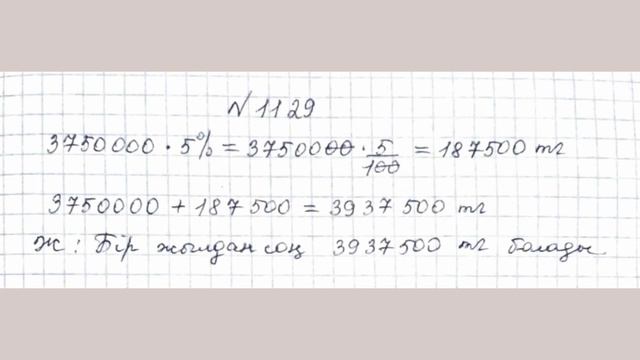 №1129
3750000 · 5% = 3750000 · 5/100 = 187500 тг
3750000 + 187500 = 3937500 тг
Ж: Бір жылдан соң 3937500 тг болады.